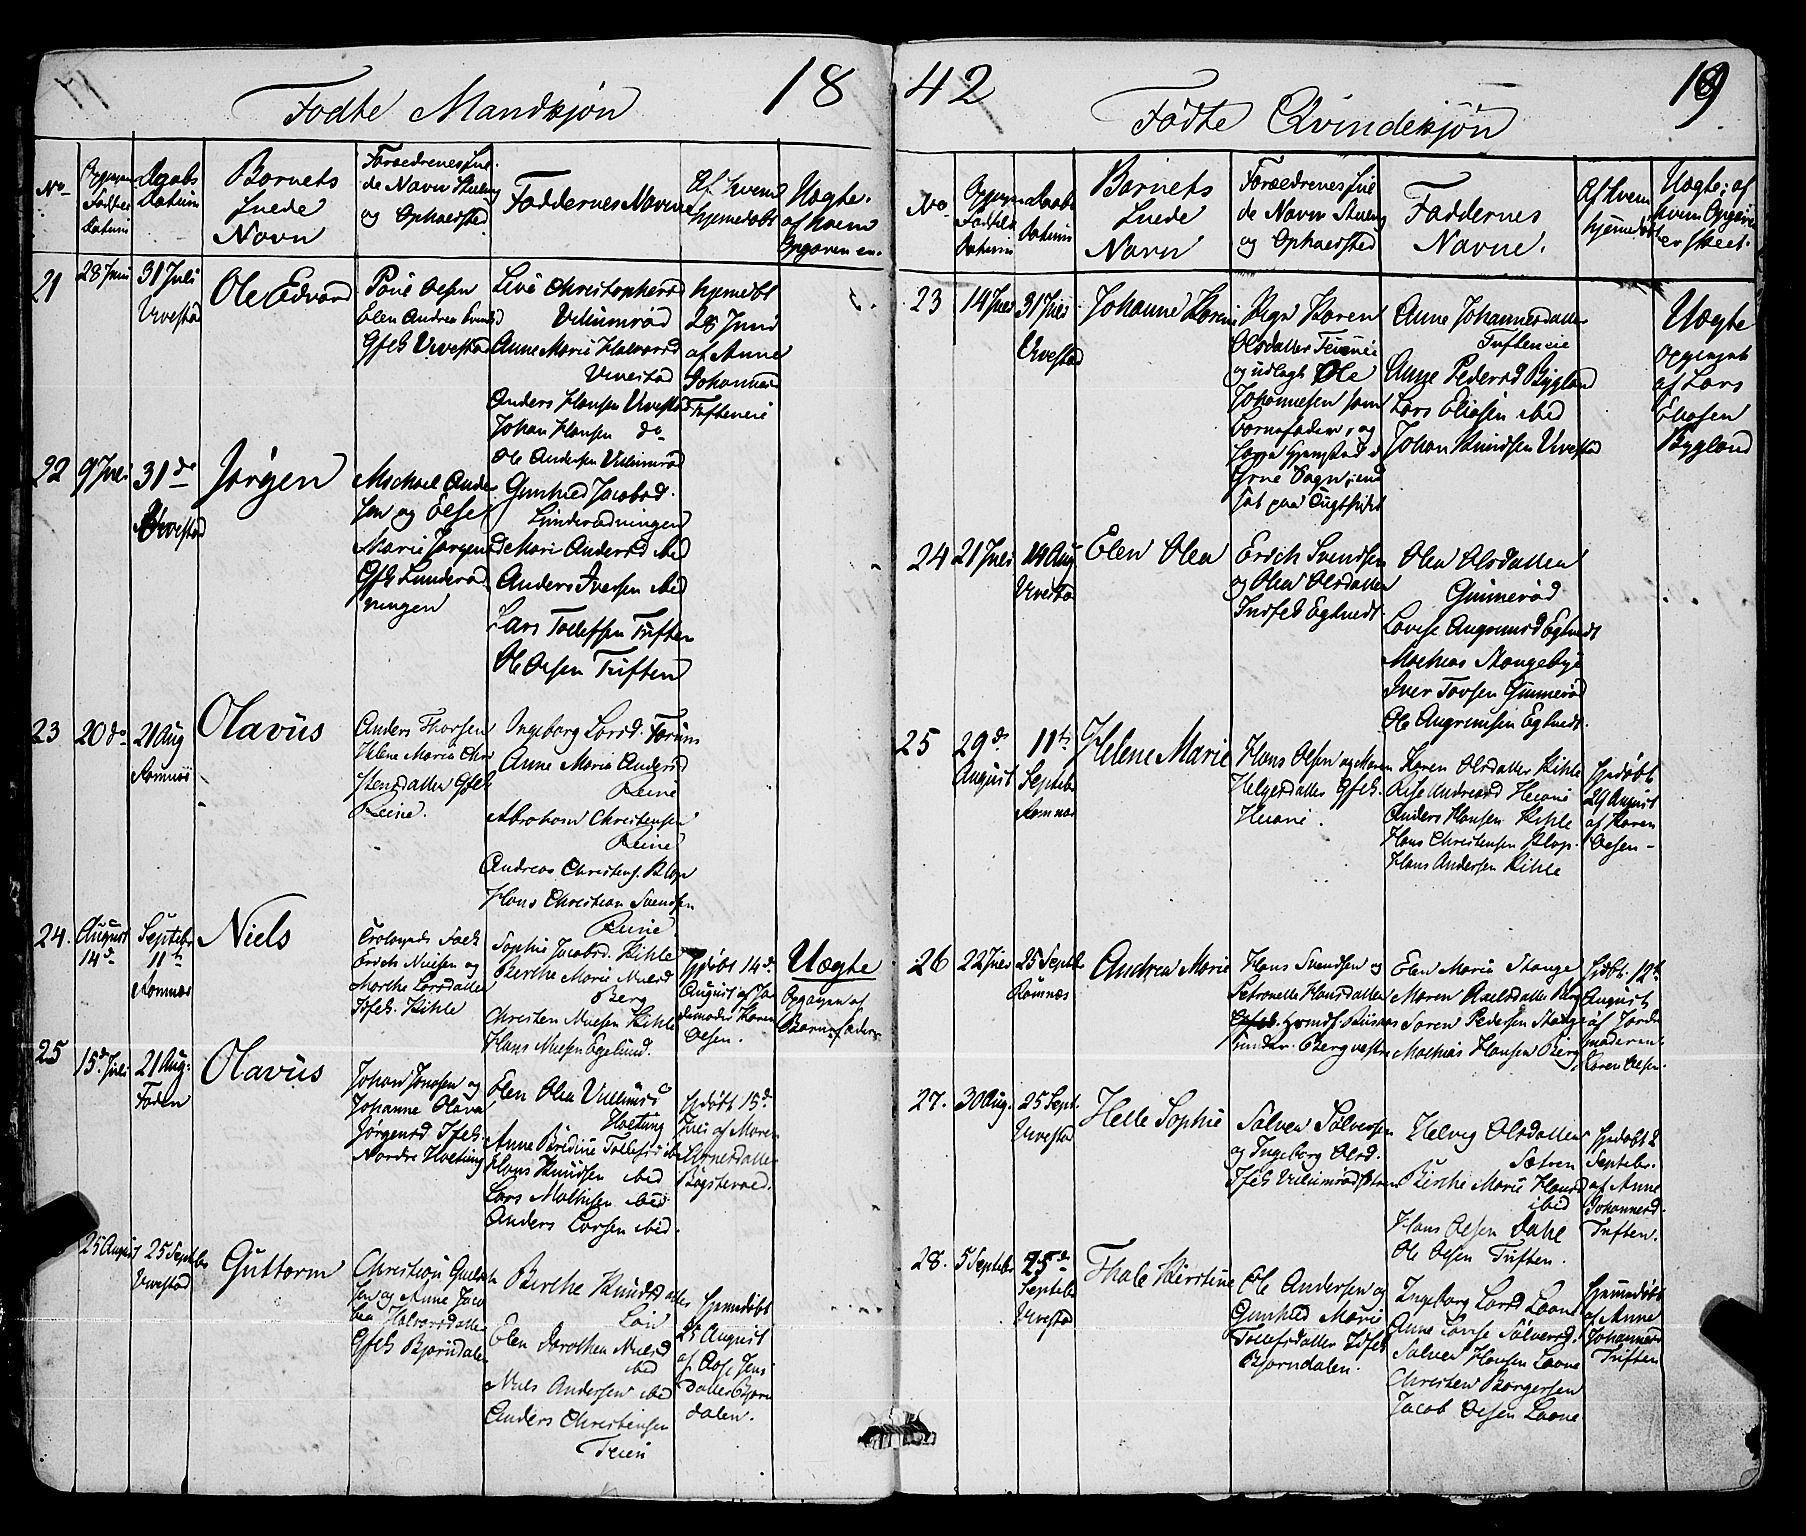 18
42
19
Fødte Mandkjøn
Fødte Qvindekjøn
No
Fødsels
Datum
Daabs
Datum
Barnets
fuede
Navn
Forældrenes fue
de Navn
og Opholdsted
Faddernes Navne
Af hvem
hjemedøbt
Uægte.
af hvem
Opgaven er.
21
28 Juni
31 Juli
Urvestad
Ole Edvard
Poul Olsen
Elen Andrea
Gfts Urvestad
Live Christophersd
Vilumrød
Anne Marie Halvorsd
Urvestad
Anders Hansen Urvestad
Johan Hansen do
Ole Andersen Vilumrød
hjemedbt
28 Juni
af Anne
Johannesd
Tufteneie
22
9 Juli
31 do
Urvestad
Jørgen
Michael Ander
sen og Else
Marie Jørgensd
Gfts Lunderød
ningen
Gunhild Jacobsd.
Lunderødningen
Mari Andersd ibid
Anders Iversen ibid
Lars Tollefsen Tuften
Ole Olsen Tuften
23
20 do
21 Aug
Ramnes
Olavus
Anders Thorsen
Helene Maria Chri
stensdatter Gfts
Reine.
Ingeborg Larsd.
Anne Maria Andersd
Reine
Abraham Christensen
Reine
Andreas Christens. Klop
Hans Christian Svendsen
Reine
24.
August
14d
Septebr
11te
Ramnes
Niels
Erich Nielsen og
Marthe Larsdatter
Kihle
Sophie Jacobsd. Kihle
Berthe Marie Nielsd
Berg
Christen Nielsen Kihle
Hans Nielsen Egelund.
Hjdøbt 14d
August af Jo
demoder Karen
Olsen.
Uægte
Opgaven af
Barnefaderen
25
15d Juli
21 Aug.
Foden
Olavus
Johan Jonasen og
Johanne Olava
Jørgensd Ifts.
Nordre Hvetung
Elen Olea
Hvetung
Anne Bredine Tollefsd ibid
Hans Knudsen ibid
Lars Mathisen ibid
Anders Larsen ibid.
Hjdøbt 15d
Juli af Maren
25 August
25 Septebr
Urvestad
Guttorm
Christian
sen og Anne Jaco
bea Halvorsdatter
Gfts Bjørndalen
Berthe Knudsdatter
Elen Dorothea Nielsd
ibid
Niels Andersen ibid
Anders Christensen
hjemedøbt
25 August
af Aase Jens
datter Bjørn
dalen.
No
Fødsels
Datum
Daabs
Datum
Barnets
fuede
Navn
Forældrenes fue
de Navn
og Opholdsted
Faddernes
Navne.
Af hvem
hjemedøbt
Uægte; af
hvem Opgaven
er skeet.
23
14 Juli
31 Juli
Urvestad
Johanne Karine
Pige Karen
Olsdatter
og udlagt Ole
Johannesen som
barnefader, og
Anne Johannesdatter
Tufteneie
Anne Pedersd Bygland
Lars Eliasen ibid
Johan Knudsen Urvestad
Uægte
Opgivet
af Lars
Eliasen
Bygland
24
21 Juli
14 Aug
Urvestad
Elen Olea
Erich Svendsen
og Olea Olsdatter
Indfts Eghuedt
Olea Olsdatter
Gunnerød
Lovise Angrimsd Eghuedt
Mathias Stangebye
Iver Torsen Gunnerød
Ole Angrimsen Eghuedt
25
29d
August
11te
Septebr
Ramnes
Helene Marie
Hans Olsen og Maren
Helgesdatter Gfts.
Karen Olsdatter Kihle
Anders Hansen Kihle
Hans Christensen Klop.
Hans Andersen Kihle
Hjdøbt
29 August
af Karen
Olsen
26
22 Juli
25 Septebr
Ramnes
Andrea Marie
Hans Svendsen og
Petronelle Hansdatter
Elen Maria Stange
Maren Axelsdatter Berg
Søren Pedersen Stange
Mathias Hansen Berg
Hjdbt. 12te
August
af Jorde
moderen
Karen Olsen
27.
30 Aug.
25 Sept.
Urvestad
Helle Sophie
Salve Salvesen
og Ingeborg Olsd.
Helvig Olsdatter
Sætren
Berthe Marie Hansd
ibid
Hans Olsen Dahl
Ole Olsen Tuften.
Hjdøbt 2
Septebr.
af Anne
Johannesd.
Tuften.
28.
5 Septebr
25d
Septebr
Urvestad
Thale Kirstine
Ole Andersen og
Gunhild Marie
Tollefsdatter Ifts
Bjørndalen.
Ingeborg Larsd Laane
Anne Lovise Salvesd.
Salve Hansen Laane
Christen Børgersen
Jacob Olsen Laane
Hjemmedøbt
af Anne
Johannesd
Tuften